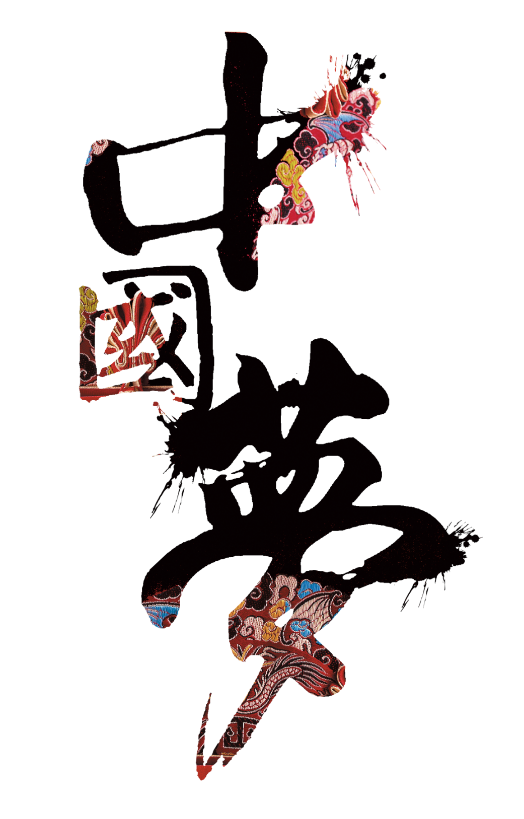 中國夢